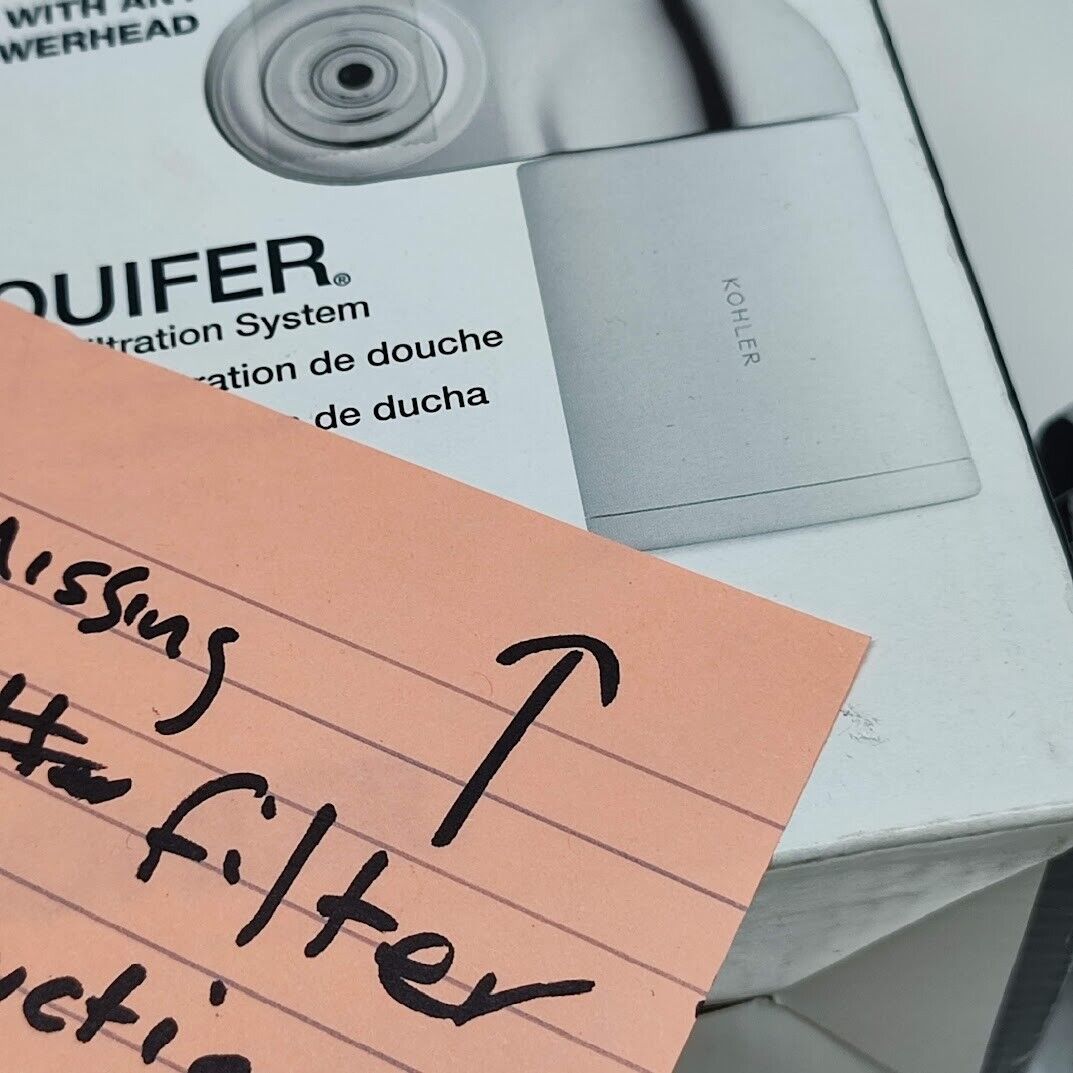 WITH AN
WERHEAD
QUIFER®
ltration System
ration de douche
de ducha
KOHLER
Missing
filter
uctio